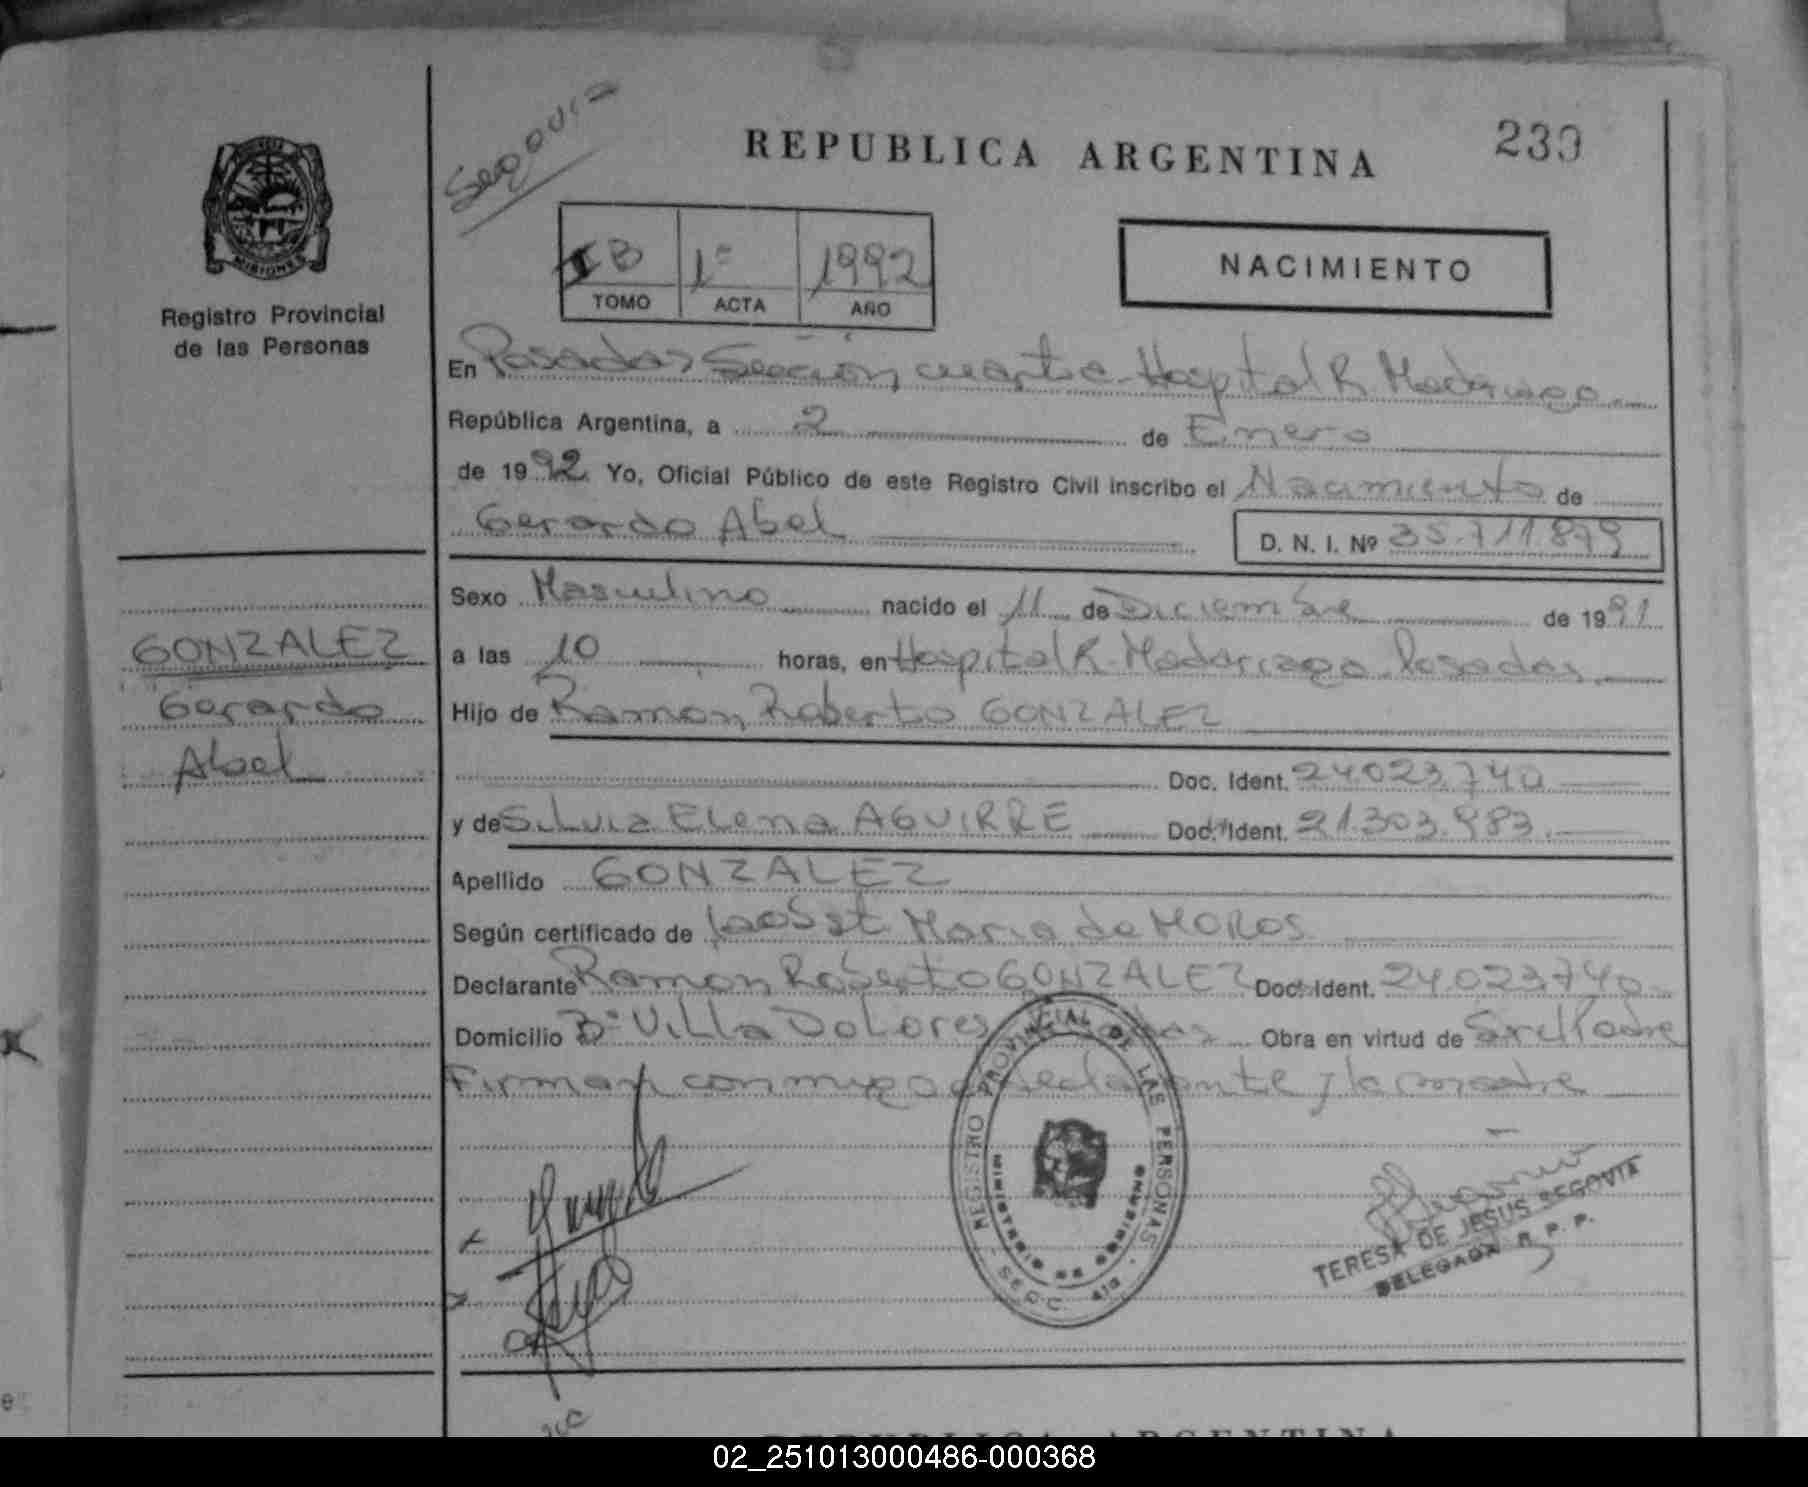 Segovia
REPUBLICA ARGENTINA
239
MISIONES
Registro Provincial
de las Personas
IB 1º 1992
TOMO ACTA AÑO
NACIMIENTO
En Posadas Sección cuarta Hospital R Madariaga
República Argentina, a 2 de Enero
de 1992 Yo, Oficial Público de este Registro Civil inscribo el Nacimiento de
Gerardo Abel D. N. I. Nº 35.711.879
Sexo Masculino nacido el 11 de Diciembre de 1991
GONZALEZ
Gerardo
Abel
a las 10 horas, en Hospital R. Madariaga Posadas
Hijo de Ramon Roberto GONZALEZ
Doc. Ident. 24.023.740
y de Silvia Elena AGUIRRE Doc. Ident. 21.303.983
Apellido GONZALEZ
Según certificado de Maria de MOROS
Declarante Ramon Roberto GONZALEZ Doc. Ident. 24.023.740
Domicilio Bº Villa Dolores Obra en virtud de
Firman conmigo declarante y la madre
REGISTRO PROVINCIAL DE LAS PERSONAS
MINISTERIO DE GOBIERNO
TERESA DE JESUS SEGOVIA
DELEGADA R. P. P.
REPUBLICA ARGENTINA
02_251013000486-000368